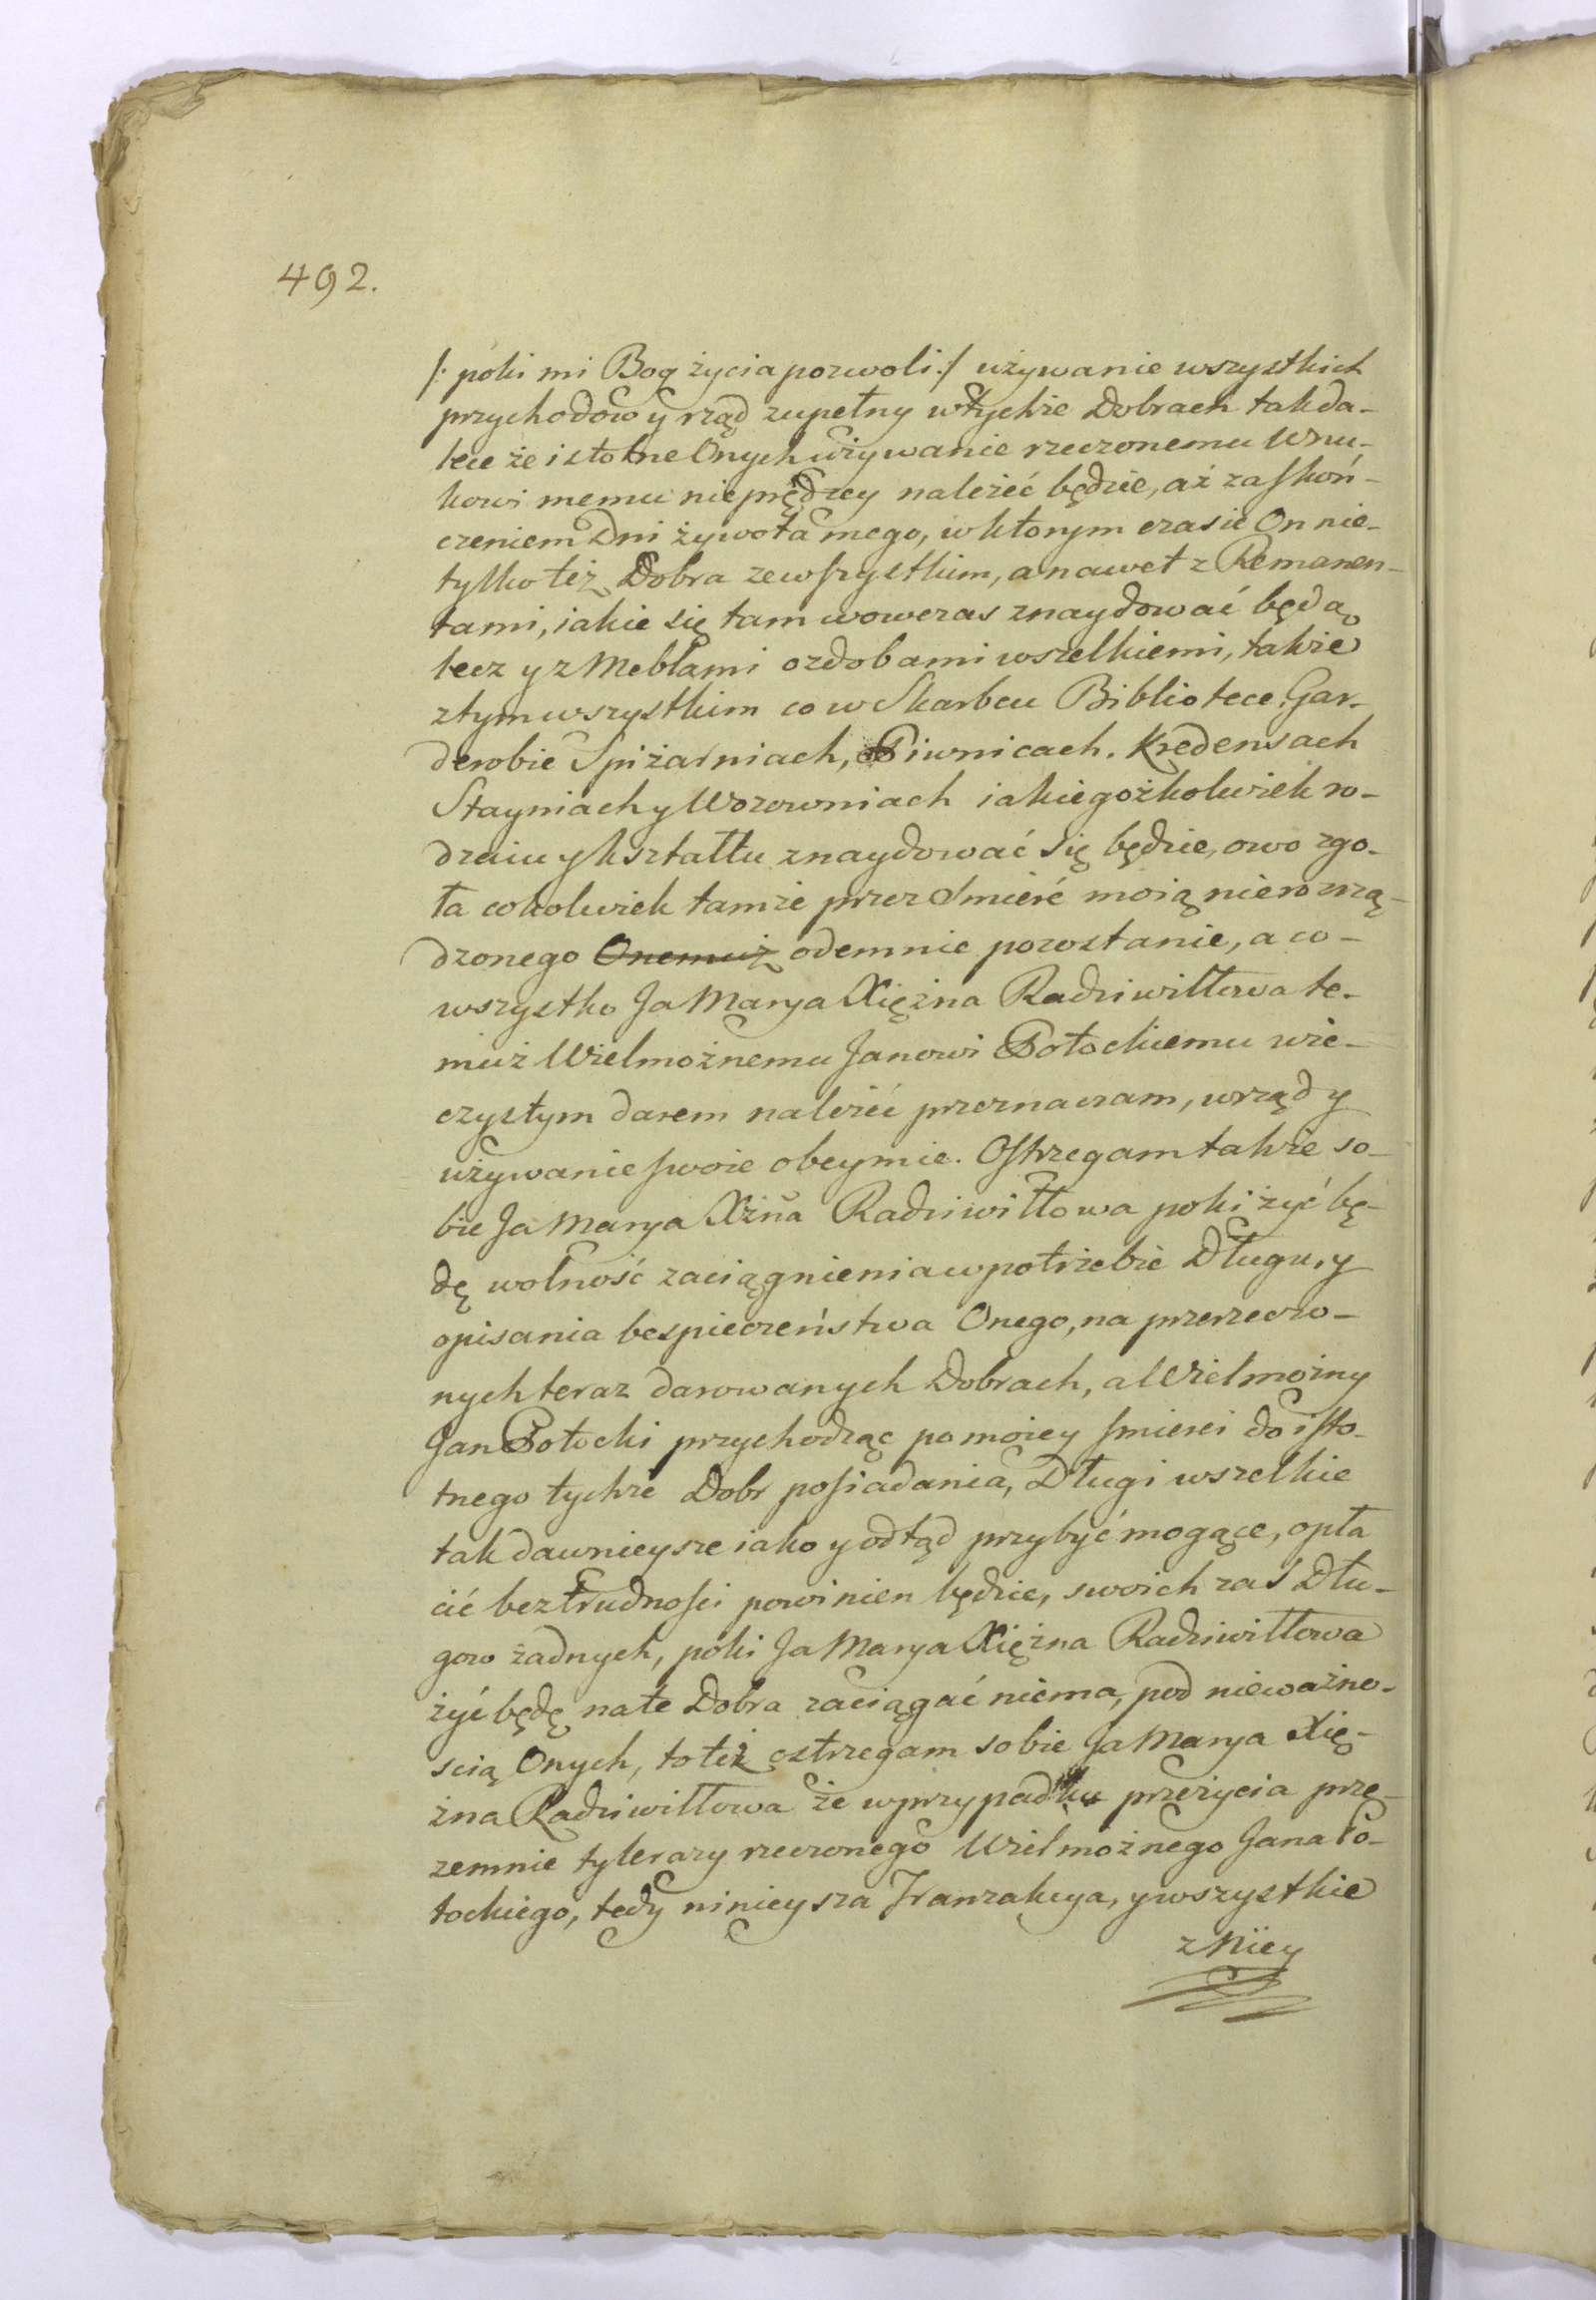 492.
/: poki mi Bog życia pozwoli :/ używanie wszystkich
przychodow y rząd zupełny w tychże Dobrach tak da-
lece że istotne Onych używanie rzeczonemu Wnu-
kowi memu nieprędzey należeć będzie, aż za skoń-
czeniem Dni żywota mego, w ktorym czasie On nie-
tylko też Dobra ze wszystkim, a nawet z Remanen-
tami, iakie się tam wowczas znaydować będą
lecz y z Meblami ozdobami wszelkiemi, także
z tym wszystkim co w Skarbcu Bibliotece, Gar-
derobie Spiżarniach, Piwnicach. Kredensach
Stayniach y Wozowniach iakiegożkolwiek ro-
dzaiu y kształtu znaydować się będzie, owo zgo-
ła cokolwiek tamże przez Smierć moią nierozrzą-
dzonego Onemuż odemnie pozostanie, a co-
wszystko Ja Marya Xiężna Radziwiłłowa te-
muż Wielmożnemu Janowi Potockiemu wie-
czystym darem należeć przeznaczam, w rząd y
używanie swoie obeymie. Ostrzegam także so-
bie Ja Marya Xżna Radziwiłłowa poki żyć bę-
dę wolność zaciągnienia w potrzebie Długu, y
opisania bespieczeństwa Onego, na przerzeczo-
nych teraz darowanych Dobrach, a Wielmożny
Jan Potocki przychodząc po moiey smierci do isto-
tnego tychże Dobr posiadania, Długi wszelkie
tak dawnieysze iako y odtąd przybyć mogące, opła
cić bez trudności powinien będzie, swoich zaś Dłu-
gow żadnych, poki Ja Marya Xiężna Radziwiłłowa
żyć będę na te Dobra zaciągać niema, pod nieważno-
scią Onych, toteż ostrzegam sobie Ja Marya Xię-
żna Radziwiłłowa że w przypadku przeżycia prze-
zemnie tylerazy rzeczonego Wielmożnego Jana Po-
tockiego, tedy ninieysza Tranzakcya, y wszystkie
z Niey